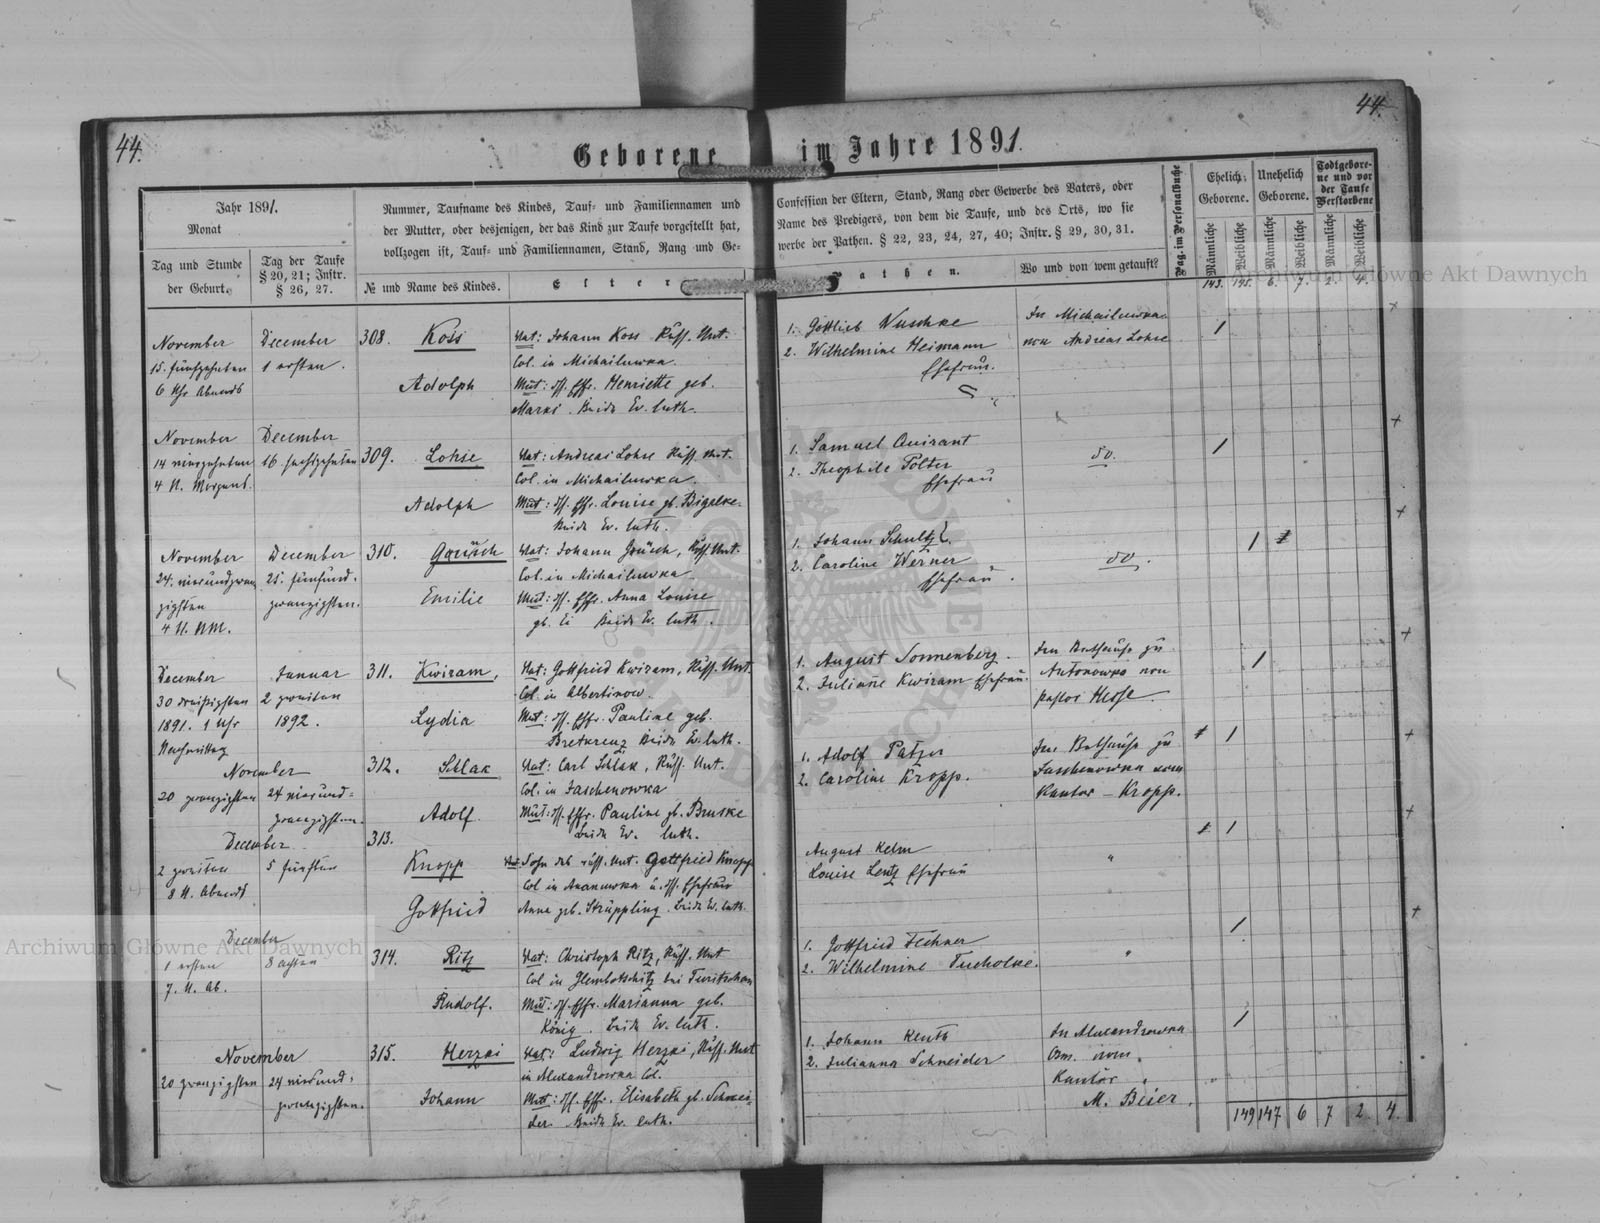 44.
44.
Geborene im Jahre 1891.
Jahr 1891.
Monat
Tag und Stunde
der Geburt.
Tag der Taufe
§ 20, 21; Instr.
§ 26, 27.
Nummer, Taufname des Kindes, Tauf- und Familiennamen und
der Mutter, oder desjenigen, der das Kind zur Taufe vorgestellt hat,
vollzogen ist, Tauf- und Familiennamen, Stand, Rang und Ge-
№ und Name des Kindes.
Elter
Confession der Eltern, Stand, Rang oder Gewerbe des Vaters, oder
Name des Predigers, von dem die Taufe, und des Orts, wo sie
werbe der Pathen. § 22, 23, 24, 27, 40; Instr. § 29, 30, 31.
Pathen.
Wo und von wem getauft?
Pag. im Personalbuche
Ehelich
Geborene.
Unehelich
Geborene.
Todtgebore-
ne und vor
der Taufe
Verstorbene
Männliche
Weibliche
Männliche
Weibliche
Männliche
Weibliche
143. 145. 6. 7. 2. 4.
November
15. fünfzehnten
6 Uhr Abends
December
1 ersten.
308. Koss
Adolph
Vat: Johann Koss Russ. Unt.
Col. in Michailuwka.
Mut: dss. Effr. Henriette geb.
Marks. Beide Ev. luth.
1. Gottlieb Wuschke
2. Wilhelmine Heimann
Ehefrau.
In Michailuwka
von Andreas Lohse
1
November
14 vierzehnten
4 U. Morgens.
December
16 sechszehnten
309. Lohse
Adolph
Vat: Andreas Lohse Russ. Unt.
Col. in Michailuwka.
Mut: dss. Effr. Louise gb. Bigalke.
Beide Ev. luth.
1. Samuel Quirant
2. Theophile Polter
Ehefrau
do.
1
November
24. vierundzwan
zigsten
4 U. NM.
December
25. fünfund.
zwanzigsten.
310. Gräusch
Emilie
Vat: Johann Gräusch, Russ. Unt.
Col. in Michailuwka
Mut: dss. Effr. Anna Louise
gb. Ei Beide Ev. luth.
1. Johann Schultz
2. Caroline Werner
Ehefrau.
do.
1
December
30 dreißigsten
1891. 1 Uhr
Nachmittag
Januar
2 zweiten
1892.
311. Kwiram,
Lydia
Vat: Gottfried Kwiram, Russ. Unt.
Col. in Albertinow.
Mut: dss. Effr. Pauline geb.
Bretkreuz Beide Ev. luth.
1. August Sonnenberg.
2. Julianne Kwiram Ehefrau.
Im Bethause zu
Antonowka von
Pastor Hesse.
1
November
20 zwanzigsten
24 vierund=
zwanzigsten.
312. Schlak
Adolf.
Vat: Carl Schlak, Russ. Unt.
Col. in Jaschenowka
Mut: dss. Effr. Pauline gb. Bruske
Beide Ev. luth.
1. Adolf Patzer
2. Caroline Kropp.
Im Bethause zu
Jaschenowka vom
Kantor – Kropp.
1
December
2 zweiten
8 U. Abends
5 fünften
313.
Knopp
Gottfried
Sohn des russ. Unt. Gottfried Knopp
Col in Ananuwka u. dss. Ehefrau
Anna geb. Strüppling. Beide Ev. luth.
August Kelm
Louise Lentz Ehefrau
"
1
December
1 ersten
7. U. Ab.
8 achten
314. Ritz
Rudolf.
Vat: Christoph Ritz, Russ. Unt
Col in Glembotschitz bei Turitschan
Mut: dss. Effr. Marianna geb.
König. Beide Ev. luth.
1. Gottfried Fechner
2. Wilhelmine Tucholke.
"
1
November
20 zwanzigsten
24 vierund=
zwanzigsten.
315. Herzki
Johann
Vat: Ludwig Herzki, Russ. Unt
in Alexandrowka Col.
Mutt: dss. Effr. Elisabeth gb. Schnei=
der. Beide Ev. luth.
1. Johann Keuth
2. Julianna Schneider
In Alexandrowka
Kantor
M. Beier.
1
149 147 6 7 2. 4.
Archiwum Główne Akt Dawnych
Archiwum Główne Akt Dawnych